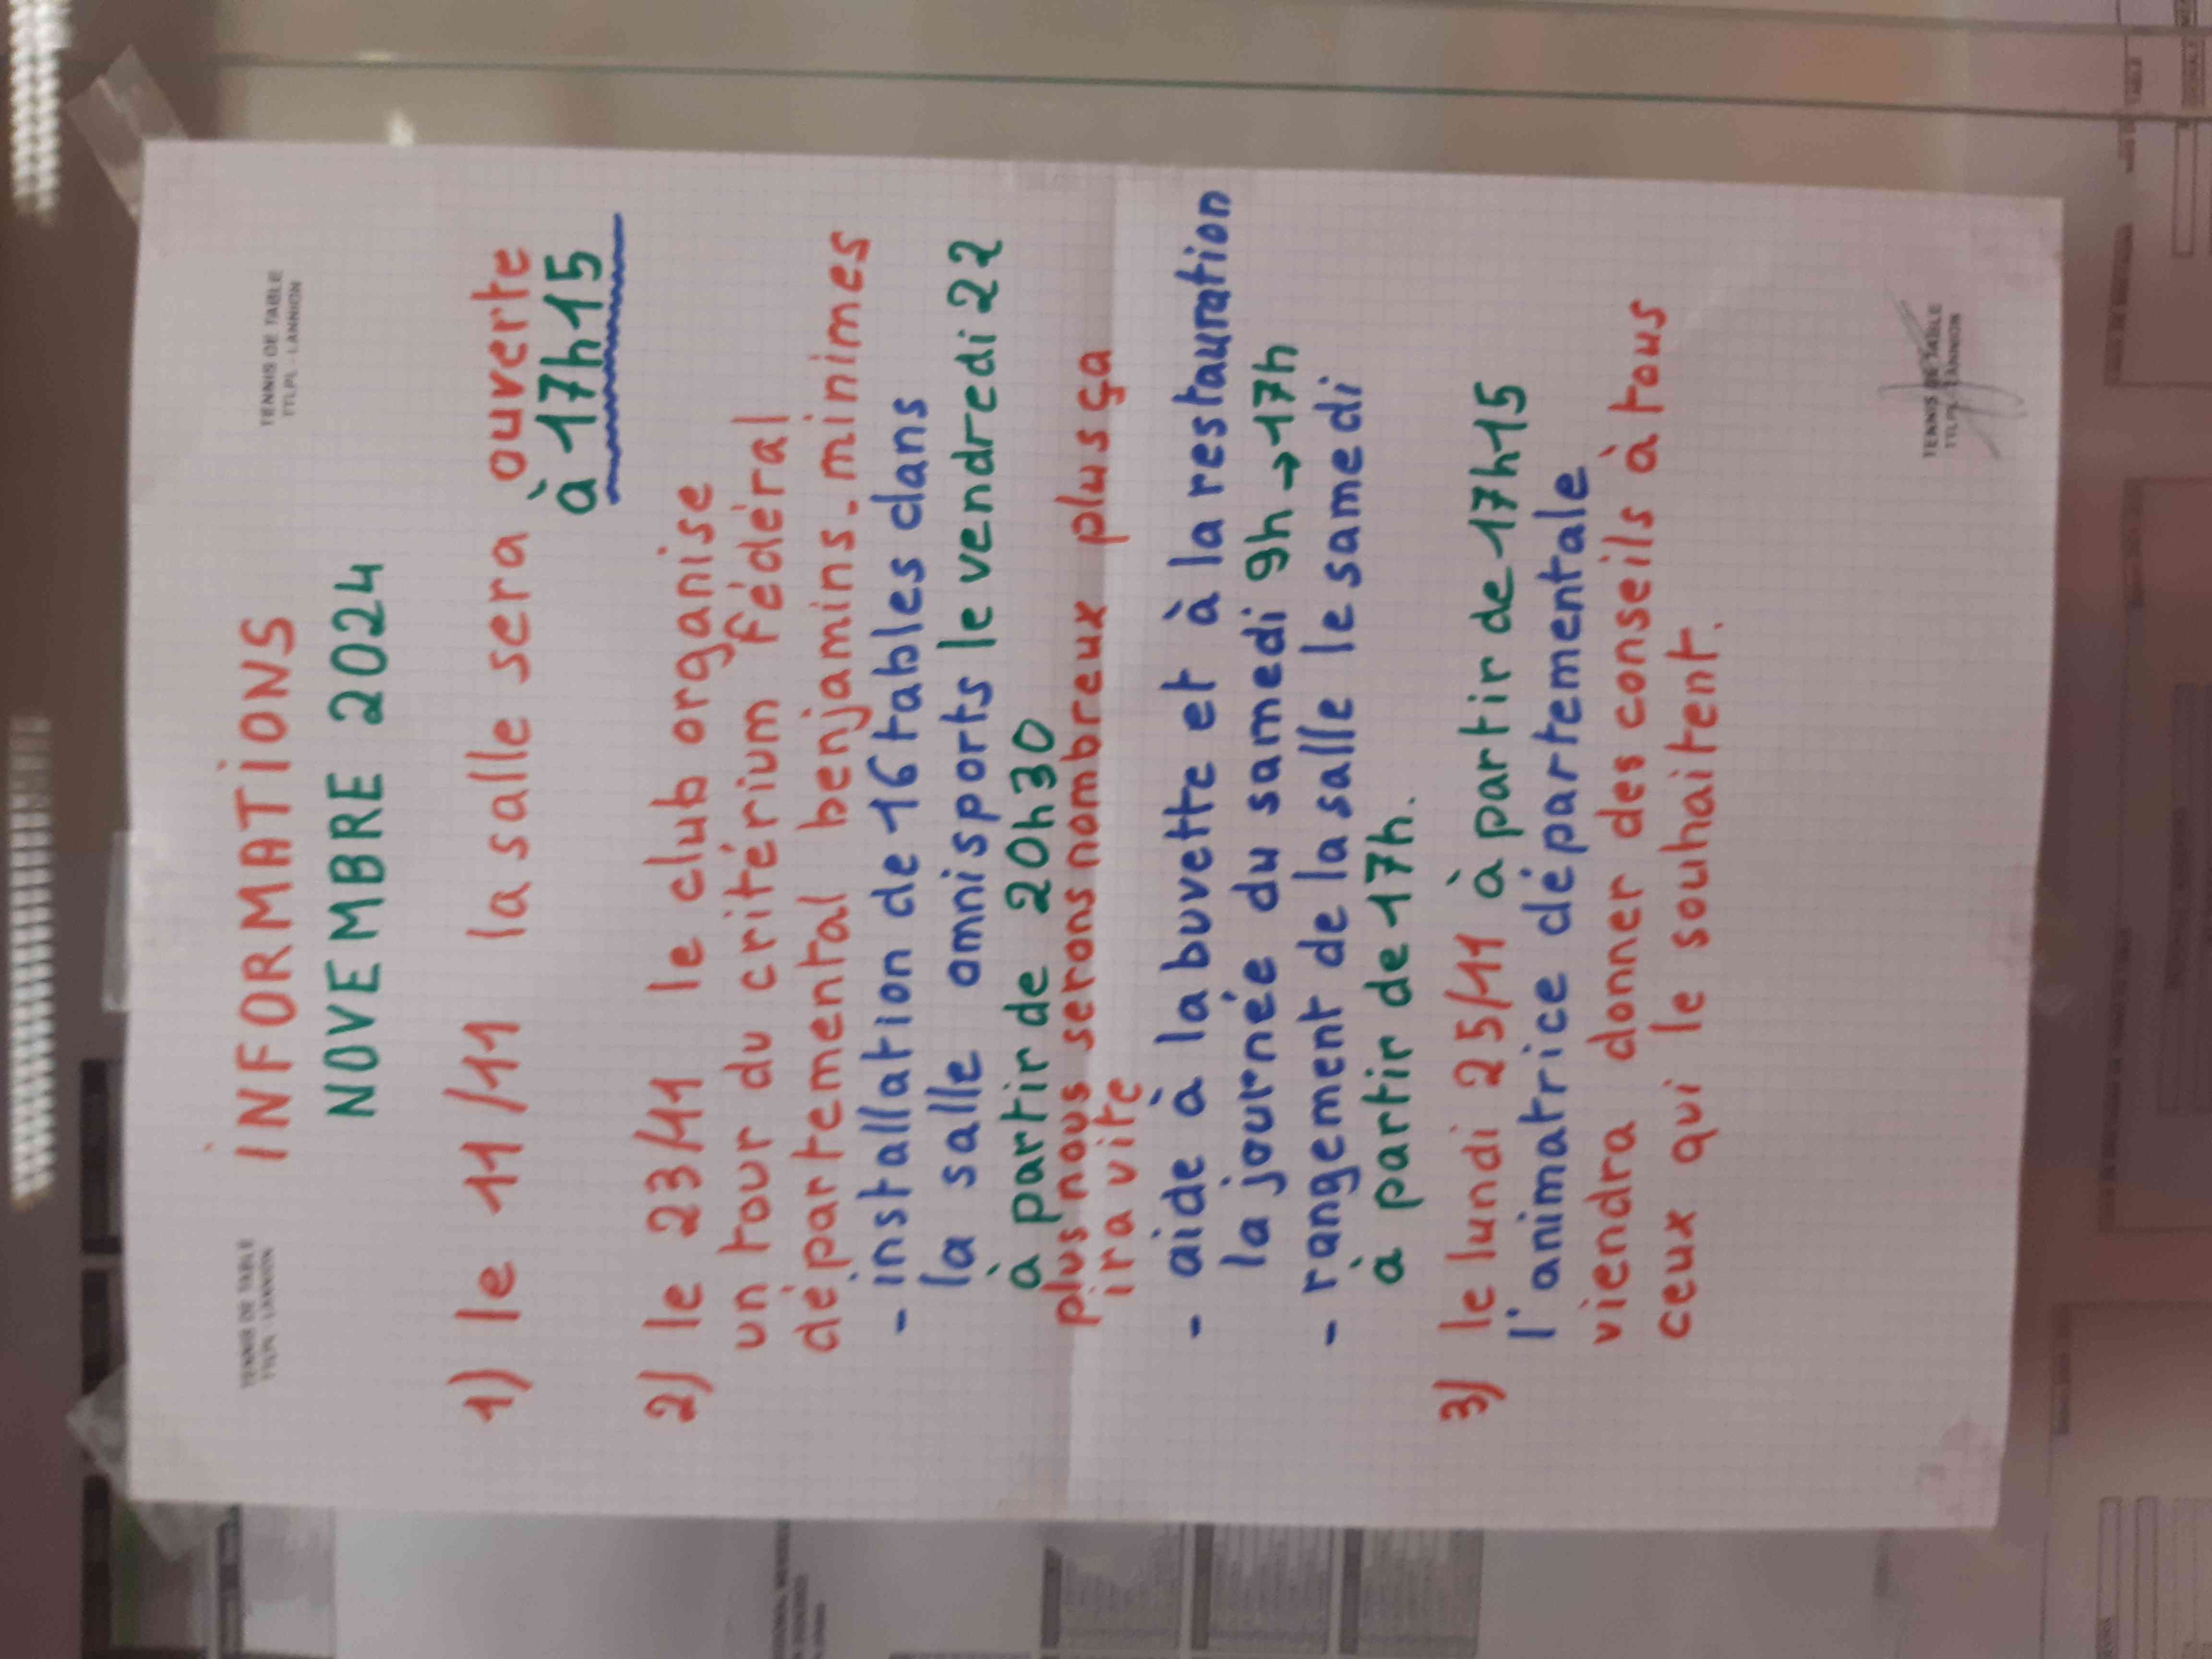 TENNIS DE TABLE
TTLPL - LANNION
INFORMATIONS
TENNIS DE TABLE
TTLPL - LANNION
NOVEMBRE 2024
1) le 11/11 la salle sera ouverte
à 17h15
2) le 23/11 le club organise
un tour du critérium fédéral
départemental benjamins - minimes
- installation de 16 tables dans
la salle omnisports le vendredi 22
à partir de 20h30
plus nous serons nombreux plus ça
ira vite
- aide à la buvette et à la restauration
la journée du samedi 9h → 17h
- rangement de la salle le samedi
à partir de 17h.
3) le lundi 25/11 à partir de 17h15
l'animatrice départementale
viendra donner des conseils à tous
ceux qui le souhaitent.
TENNIS DE TABLE
TTLPL - LANNION